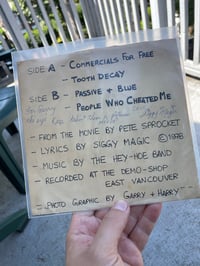 SIDE A - COMMERCIALS FOR FREE
- TOOTH DECAY
SIDE B - PASSIVE + BLUE
- PEOPLE WHO CHEATED ME
- FROM THE MOVIE BY PETE SPROCKET
- LYRICS BY SIGGY MAGIC © 1978
- MUSIC BY THE HEY-HOE BAND
- RECORDED AT THE DEMO-SHOP
EAST VANCOUVER
- PHOTO GRAPHIC BY GARRY + HARRY -